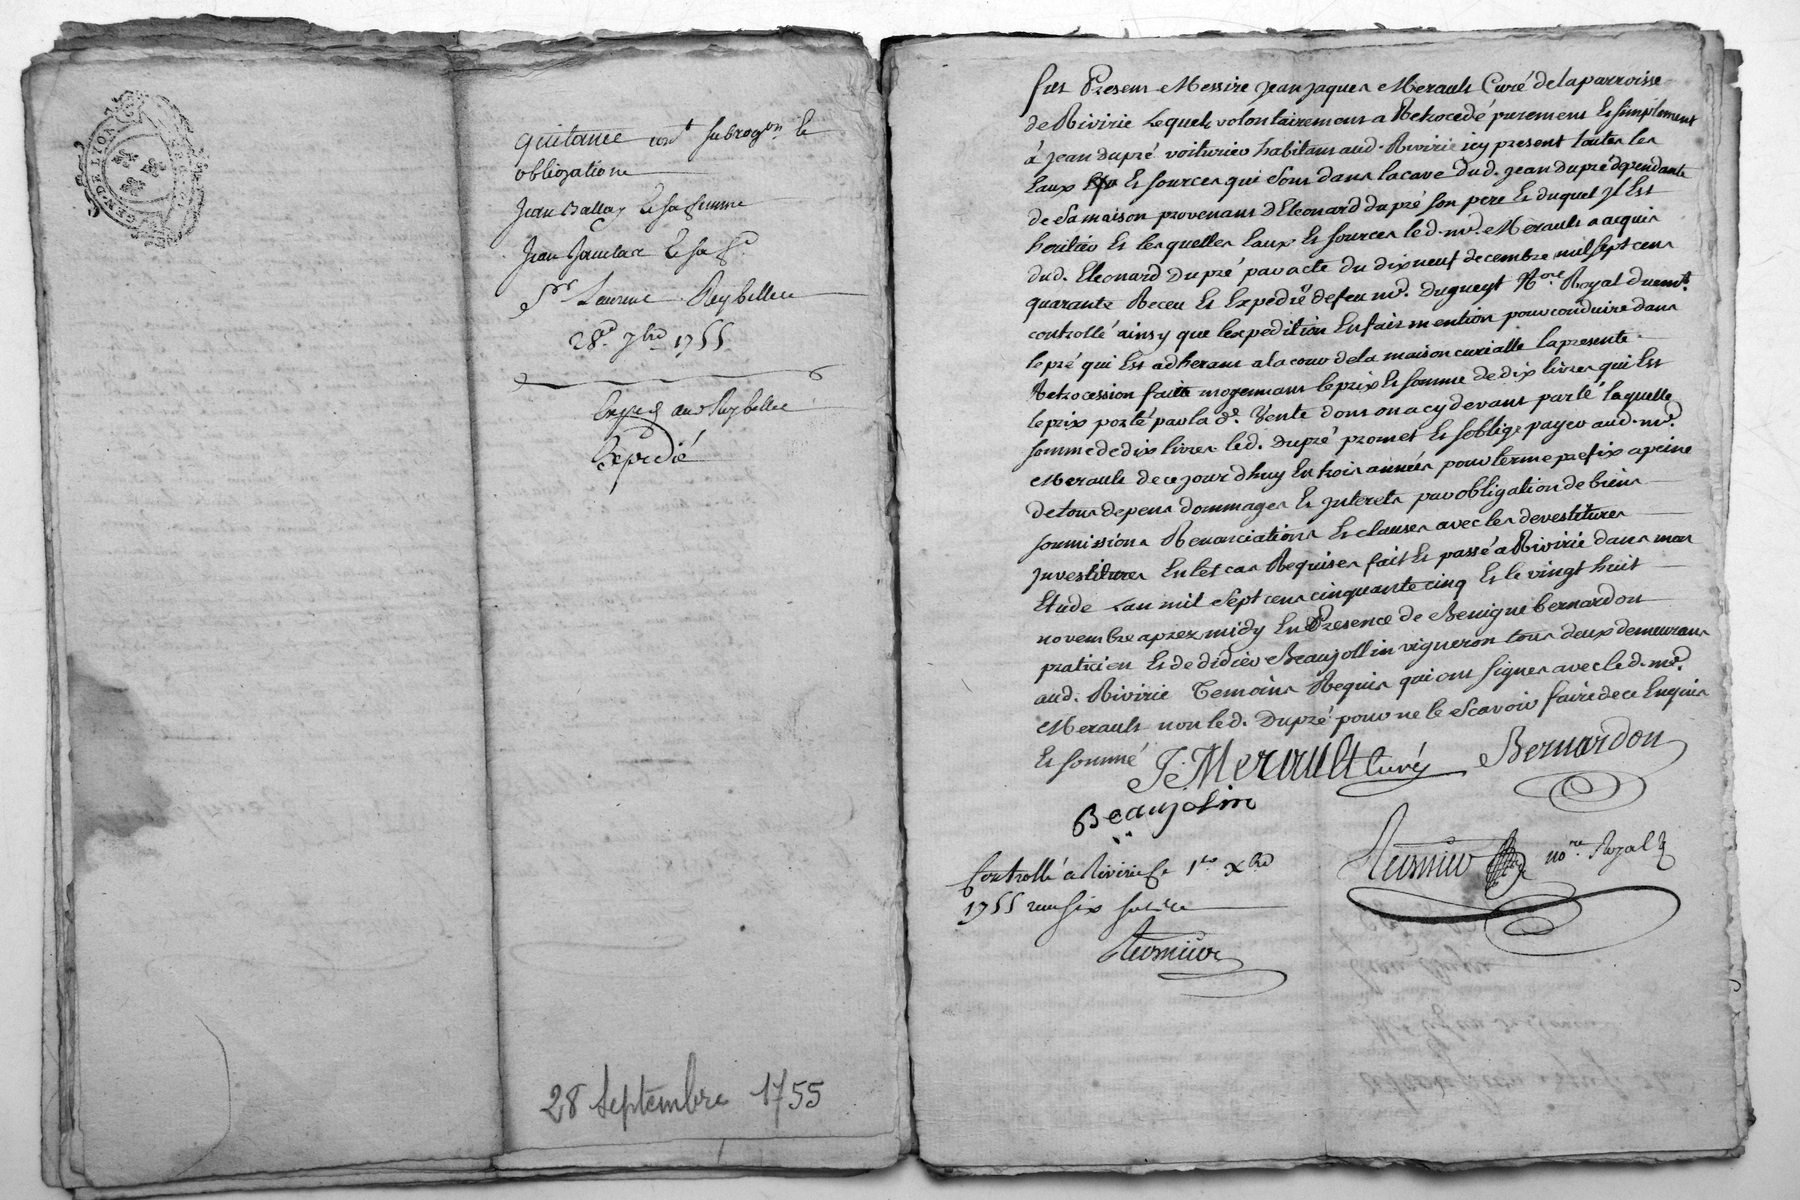 GEN. DE LYON
quitance cont subrogon et
obligation
Jean Ballay et sa femme
Jean et sa fe
Sr Laurent Reybellet
28e 7bre 1755
Exped au Reybellet
Expedié
28 Septembre 1755
fut Present Messire Jean Jaques Merault Curé de la parroisse
de Rivirie Lequel volontairement a Retrocedé purement Et simplement
à Jean dupré voiturier habitant aud. Rivirie icy present toutes les
Eaux Et sources qui sont dans la cave dud. Jean dupré dependante
de sa maison provenant d'Eleonard dupré son pere Et duquel Il Est
heritier Et lesquelles Eaux Et sources led. mre. Merault a acquis
dud. Eleonard Dupré par acte du dix neuf decembre mil sept cens
quarante Receu Et Expedié de feu mre. Dugueyt Nore Royal duemt.
controllé ainsy que lexpedition En fait mention pour conduire dans
le pré qui Est adherant a la cour de la maison curialle la presente
Retrocession faitte moyennant le prix Et somme de dix livres qui Est
le prix porté par la de. Vente dont on a cy devant parlé laquelle
somme de dix livres led. Dupré promet Et soblige payer aud. mre.
Merault de ce jourdhuy En trois années pour terme prefix a peine
de tous depens dommages Et Interets par obligation de biens
soumissions Renonciations Et clauses avec les devestitures
Investitures En tel cas Requises fait Et passé a Rivirie dans mon
Etude Lan mil sept cens cinquante cinq Et le vingt huit
novembre apres midy En Presence de Benigne bernardon
praticien Et de didier Beaujollin vigneron tous deux demeurans
aud. Rivirie Temoins Requis qui ont signes avec led. mre.
Merault non led. Dupré pour ne le scavoir faire de ce Enquis
Et sommé J.J. Merault Curé Bernardon
Beaujolin
nore. Royal
Controllé a Rivirie le 1er Xbre
1755 recu six sols